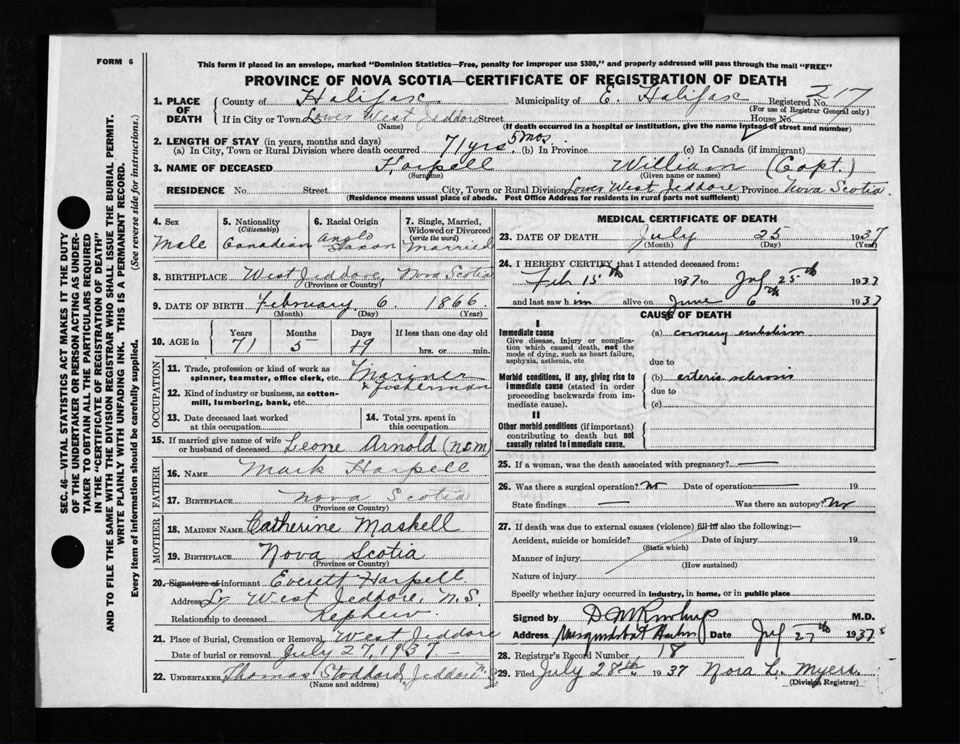 FORM 6
This form if placed in an envelope, marked "Dominion Statistics—Free, penalty for improper use $300," and properly addressed will pass through the mail "FREE"
PROVINCE OF NOVA SCOTIA—CERTIFICATE OF REGISTRATION OF DEATH
1. PLACE OF DEATH { County of Halifax Municipality of E. Halifax Registered No. 217
(For use of Registrar General only)
If in City or Town Lower West Jeddore Street House No.
(Name) (If death occurred in a hospital or institution, give the name instead of street and number)
2. LENGTH OF STAY (in years, months and days)
(a) In City, Town or Rural Division where death occurred 71 yrs. 5 mos. (b) In Province (c) In Canada (if immigrant)
3. NAME OF DECEASED Harpell William (Capt.)
(Surname) (Given name or names)
RESIDENCE No. Street City, Town or Rural Division Lower West Jeddore Province Nova Scotia
(Residence means usual place of abode. Post Office Address for residents in rural parts not sufficient)
4. Sex Male
5. Nationality (Citizenship) Canadian
6. Racial Origin Anglo Saxon
7. Single, Married, Widowed or Divorced (write the word) Married
8. BIRTHPLACE West Jeddore, Nova Scotia
(Province or Country)
9. DATE OF BIRTH February 6 1866
(Month) (Day) (Year)
10. AGE in Years 71 Months 5 Days 19 If less than one day old hrs. or min.
OCCUPATION
11. Trade, profession or kind of work as spinner, teamster, office clerk, etc. Mariner & fisherman
12. Kind of industry or business, as cotton-mill, lumbering, bank, etc.
13. Date deceased last worked at this occupation
14. Total yrs. spent in this occupation
15. If married give name of wife or husband of deceased Leone Arnold (NSM)
FATHER
16. NAME Mark Harpell
17. BIRTHPLACE Nova Scotia
(Province or Country)
MOTHER
18. MAIDEN NAME Catherine Maskell
19. BIRTHPLACE Nova Scotia
(Province or Country)
20. Signature of informant Everett Harpell
Address Lr West Jeddore, N.S.
Relationship to deceased Nephew.
21. Place of Burial, Cremation or Removal West Jeddore
Date of burial or removal July 27, 1937
22. UNDERTAKER Thomas Stoddard, Jeddore N.S.
(Name and address)
MEDICAL CERTIFICATE OF DEATH
23. DATE OF DEATH July 25 1937
(Month) (Day) (Year)
24. I HEREBY CERTIFY that I attended deceased from:
Feb 15th 1937 to July 25th 1937
and last saw him alive on June 6th 1937
CAUSE OF DEATH
I
Immediate cause
Give disease, injury or complication which caused death, not the mode of dying, such as heart failure, asphyxia, asthenia, etc
(a) coronary embolism
due to
Morbid conditions, if any, giving rise to immediate cause (stated in order proceeding backwards from immediate cause).
(b) arterio sclerosis
due to
(c)
II
Other morbid conditions (if important) contributing to death but not causally related to immediate cause.
25. If a woman, was the death associated with pregnancy?
26. Was there a surgical operation? No Date of operation 19
State findings Was there an autopsy? No
27. If death was due to external causes (violence) fill in also the following:—
Accident, suicide or homicide? Date of injury 19
(State which)
Manner of injury
(How sustained)
Nature of injury
Specify whether injury occurred in industry, in home, or in public place
Signed by M.D.
Address Musquodoboit Harbor Date July 27th 1937
28. Registrar's Record Number 18
29. Filed July 28th 1937 Nora L. Myers.
(Division Registrar)
SEC. 46—VITAL STATISTICS ACT MAKES IT THE DUTY
OF THE UNDERTAKER OR PERSON ACTING AS UNDER-
TAKER TO OBTAIN ALL THE PARTICULARS REQUIRED
IN THE "CERTIFICATE OF REGISTRATION OF DEATH"
AND TO FILE THE SAME WITH THE DIVISION REGISTRAR WHO SHALL ISSUE THE BURIAL PERMIT.
WRITE PLAINLY WITH UNFADING INK. THIS IS A PERMANENT RECORD.
Every item of information should be carefully supplied. (See reverse side for instructions.)